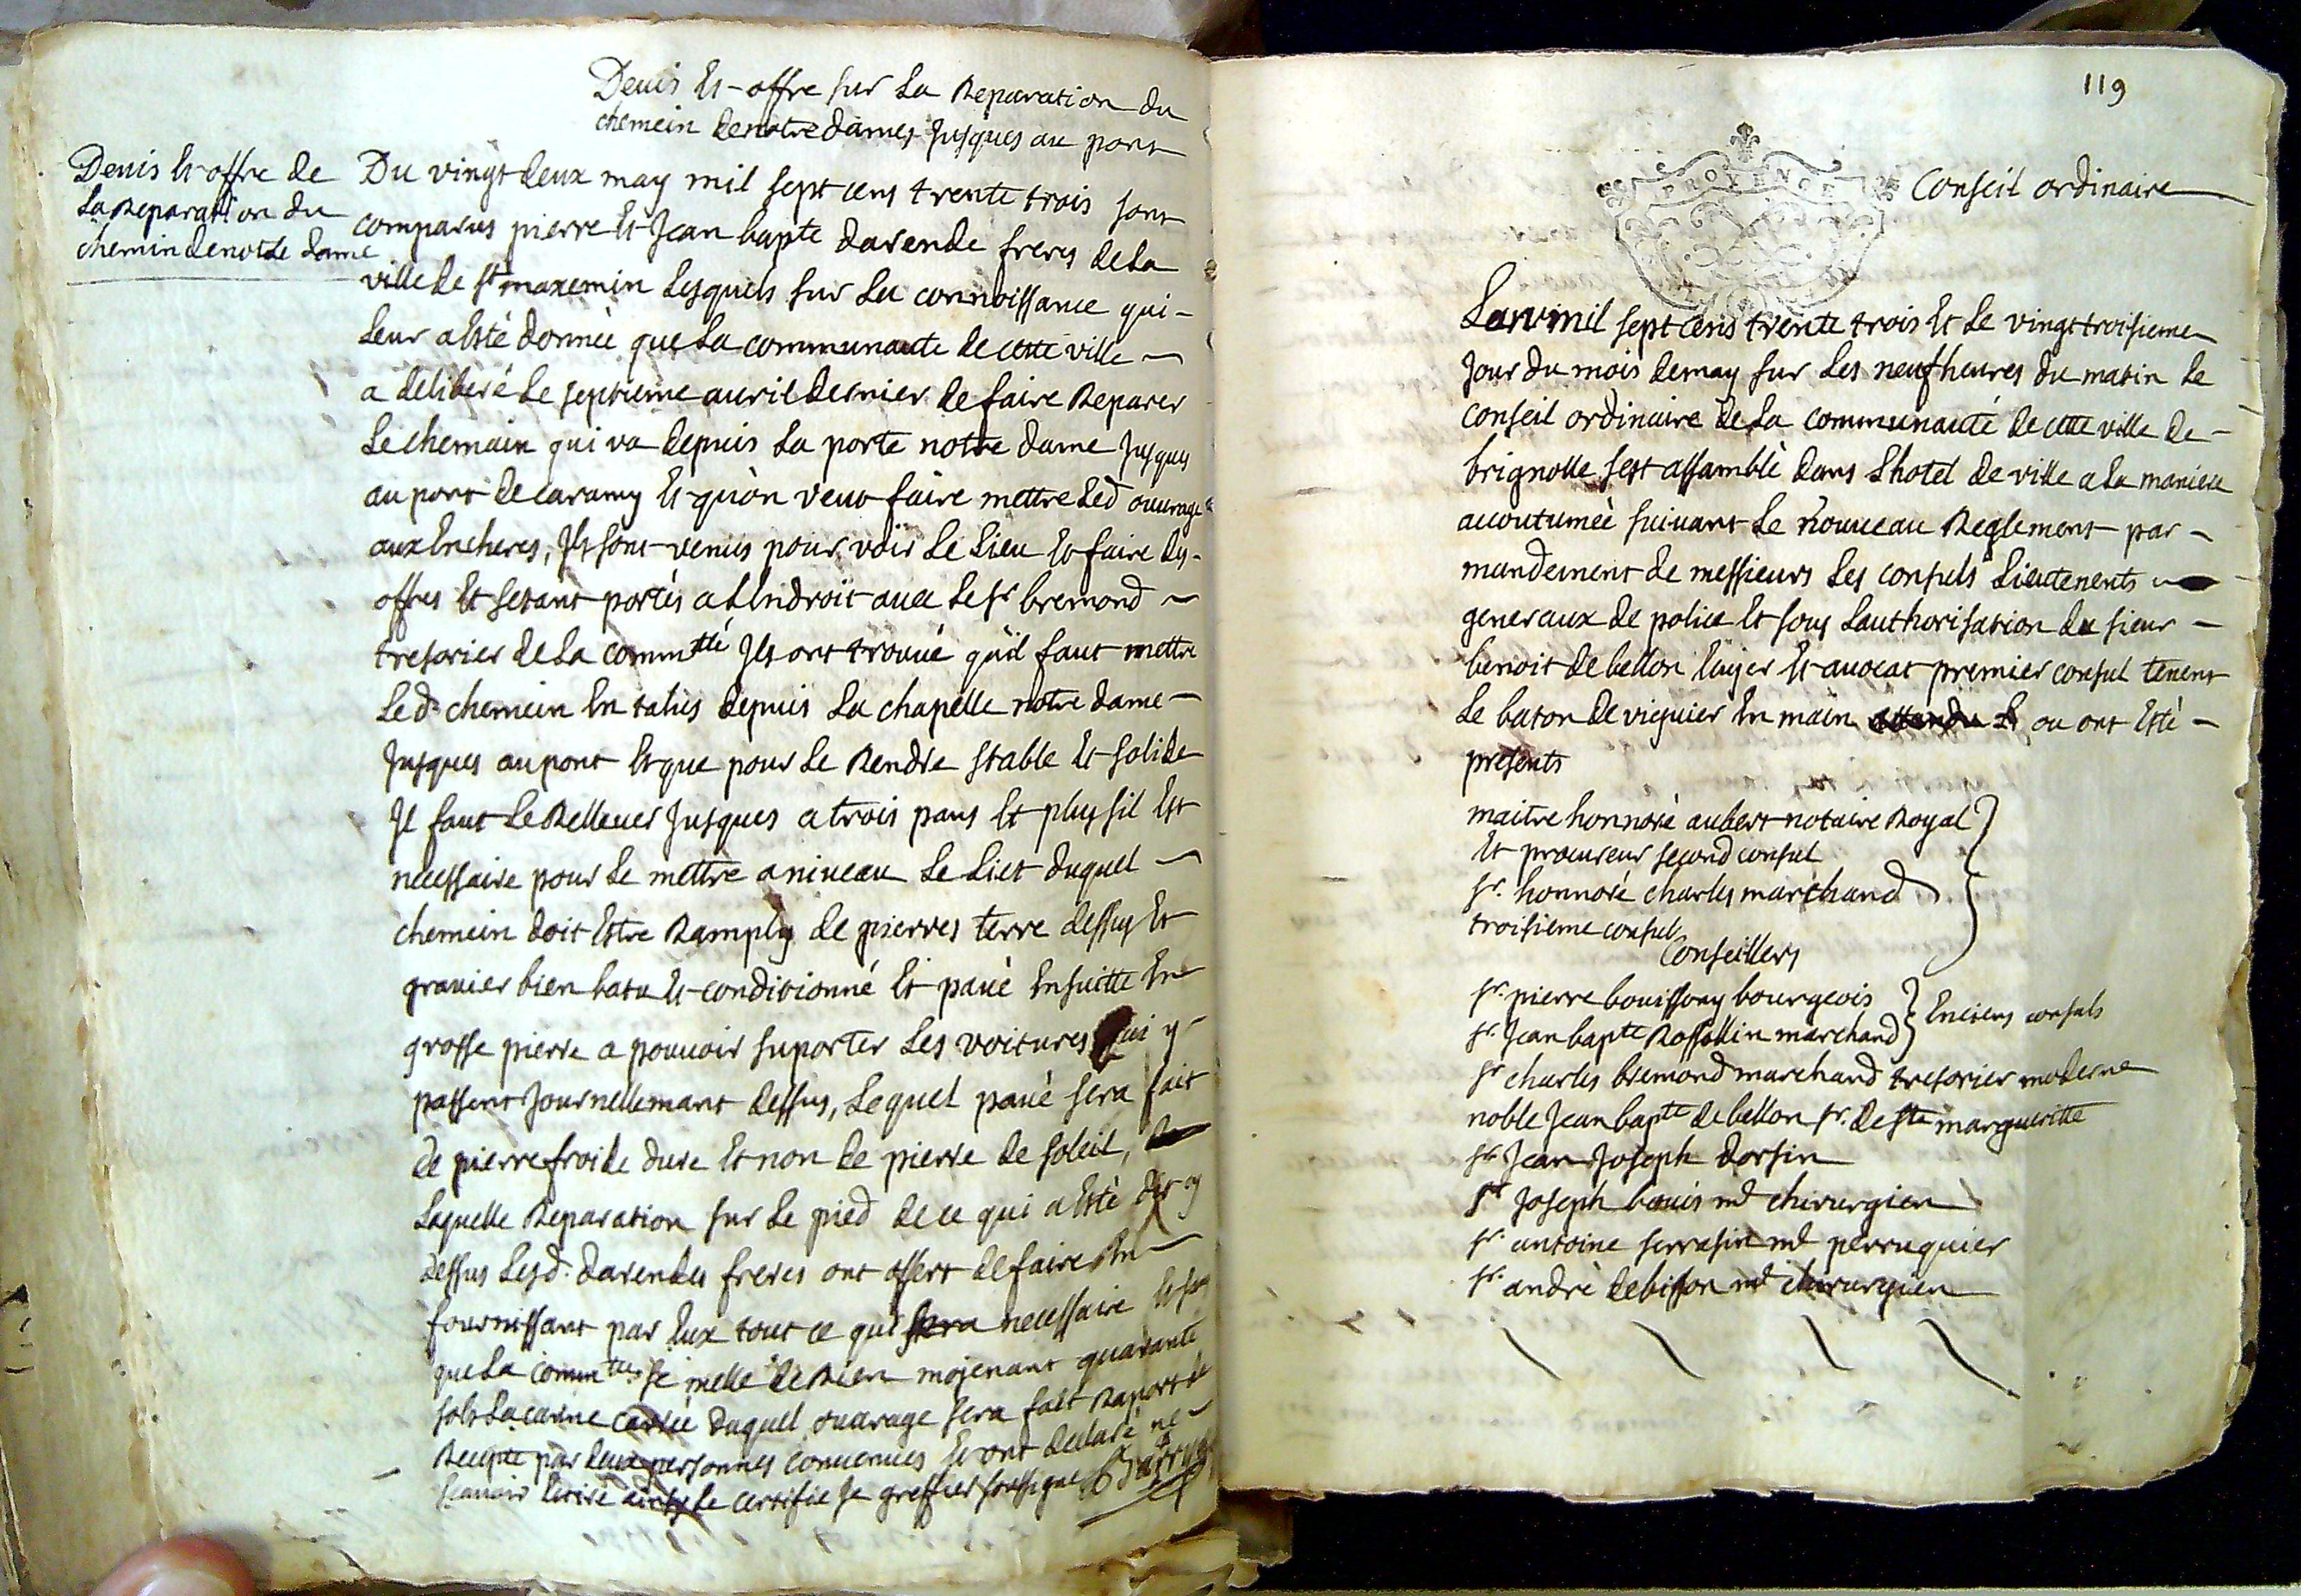 Devis Et offre sur La Reparation du
chemein de notre dames Jusques au pont
Devis Et offre de
La Reparation du
chemin de notre dame
Du vingt deux may mil sept cens trente trois sont
comparus pierre Et Jean bapte darende freres de La
ville de st maxemin Lesquels sur La connoissance qui
Leur a Esté donnée que La communauté de cette ville
a deliberé Le septieme auril dernier de faire Reparer
Le chemain qui va depuis La porte notre dame Jusques
au pont de caramy Et qu'on veut faire mettre Led ouurage
aux Encheres, Ils sont venus pour voir Le Lieu Et faire des
offres Et setant portés a L'Endroit auec Le sr bremond
tresorier de La commtté Ils ont trouué qu'il faut mettre
Led. chemein En talus depuis La chapelle notre dame
Jusques au pont Et que pour Le Rendre stable Et solide
Il faut Le Relleuer Jusques a trois pans Et plus sil Est
necessaire pour Le mettre a niueau Le Lict duquel
chemein doit Estre Ramply de pierres terre dessus Et
grauier bien batu Et conditionné Et paué Ensuitte En
grosse pierre a pouuoir suporter Les voitures qui y
passent Journellemant dessus, Lequel paué sera fait
de pierre froide dure Et non de pierre de soleil,
Laquelle Reparation sur Le pied de ce qui a Esté dit cy
dessus Lesd. darendes freres ont offert de faire En
fournissant par Eux tout ce qui sera necessaire Et sans
que La commtté se melle de Rien mojenant quarante
sols La canne carrée duquel ouurage sera fait Raport de
Recepte par deux personnes conuenues Et ont declaré ne
scauoir Ecrire ainsy Le certifie Je greffier soussigné
119
PROVENCE
Conseil ordinaire
Lan mil sept cens trente trois Et Le vingt troisieme
Jour du mois de may sur Les neuf heures du matin Le
conseil ordinaire de La communauté de cette ville de
brignolle sest assamblé dans Lhotel de ville a La maniere
accoutumée suiuant Le nouueau Reglement par
mandement de messieurs Les consuls Lieutenents
generaux de police Et sous Lauthorisation du sieur
benoit de bellon Euyer Et auocat premier consul tenent
Le baton de viguier En main attandu ou ont Esté
presents
maitre honnoré aubert notaire Royal
Et procureur second consul
sr. honnoré charles marchand
troisieme consul
Conseillers
sr. pierre bouissony bourgeois
sr. Jean bapte Rossollin marchand
Enciens consuls
sr charles bremond marchand tresorier moderne
noble Jean bapte de bellon sr. de ste margueritte
sr Jean Joseph dorsin
sr Joseph bouis md chirurgien
sr. antoine serrasin md perruquier
sr. andré debisson md chirurgien